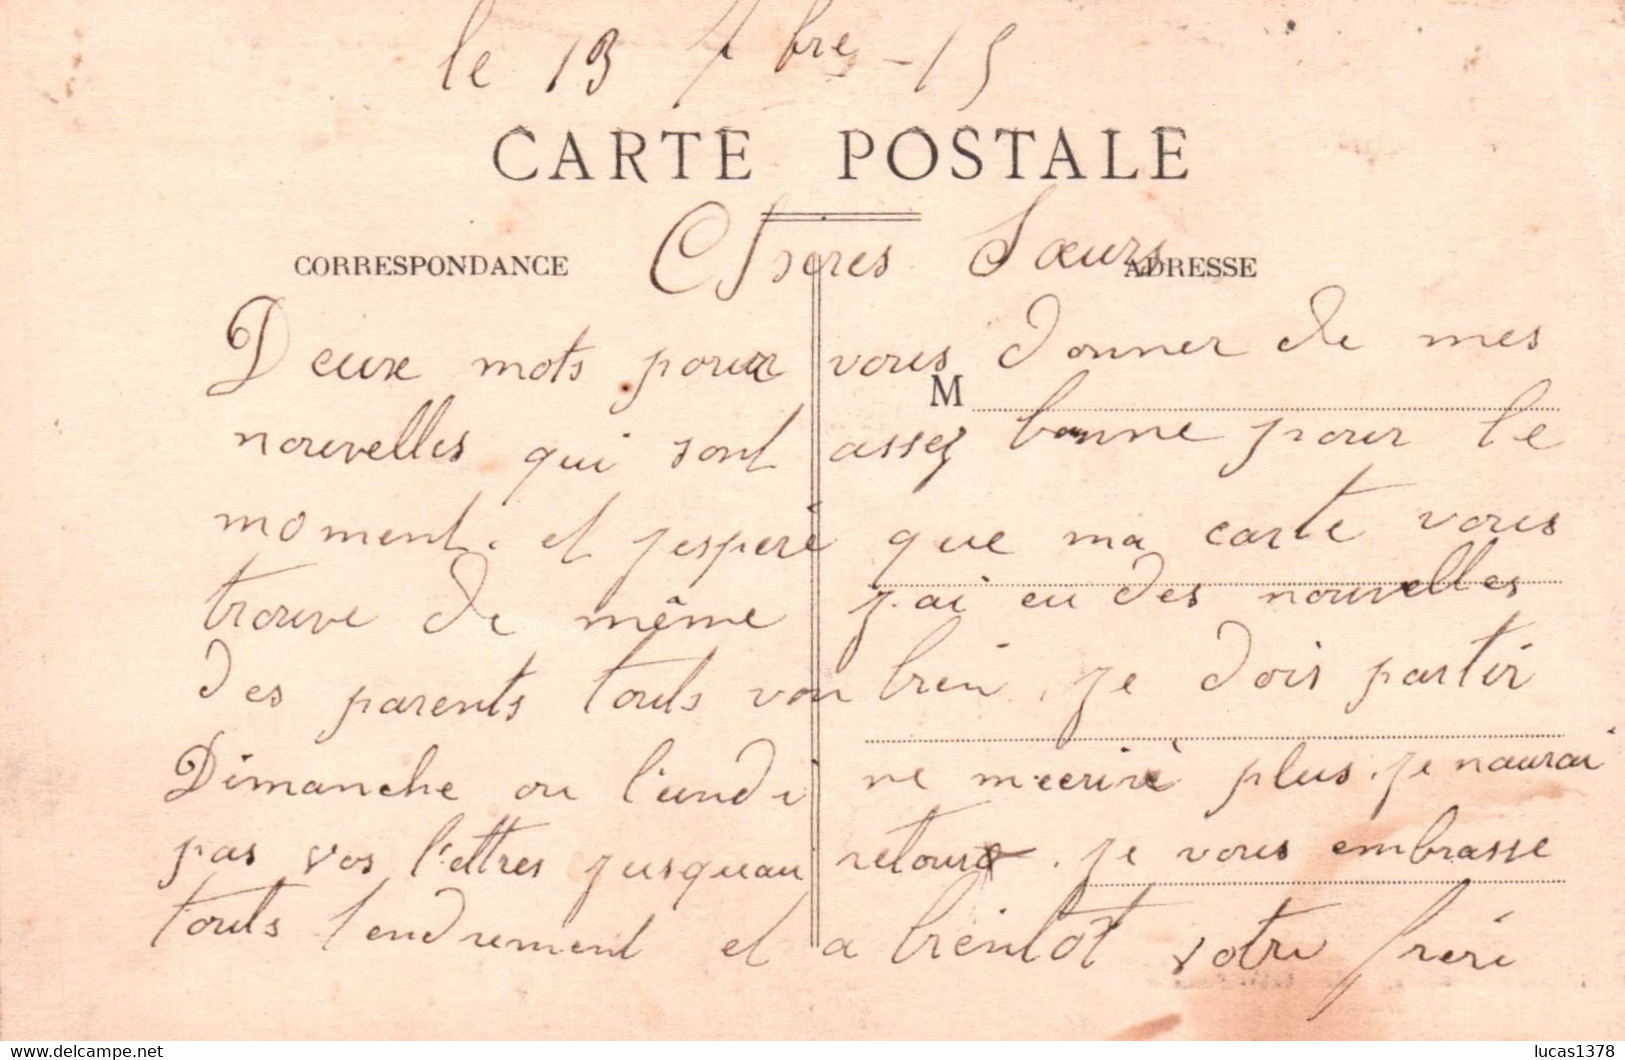 le 13 7bre - 15
CARTE POSTALE
CORRESPONDANCE
ADRESSE
Chères Sœurs
Deux mots pour vous donner de mes
M
nouvelles qui sont assez bonne pour le
moment. et jesperè que ma carte vous
trouve de même j'ai eu des nouvelles
des parents touts von bien. je dois partir
Dimanche ou l'undi ne mecrirè plus. je naurai
pas vos l'ettres jusquau retour. je vous embrasse
touts tendrement et a bientôt votre frère
lucas1378